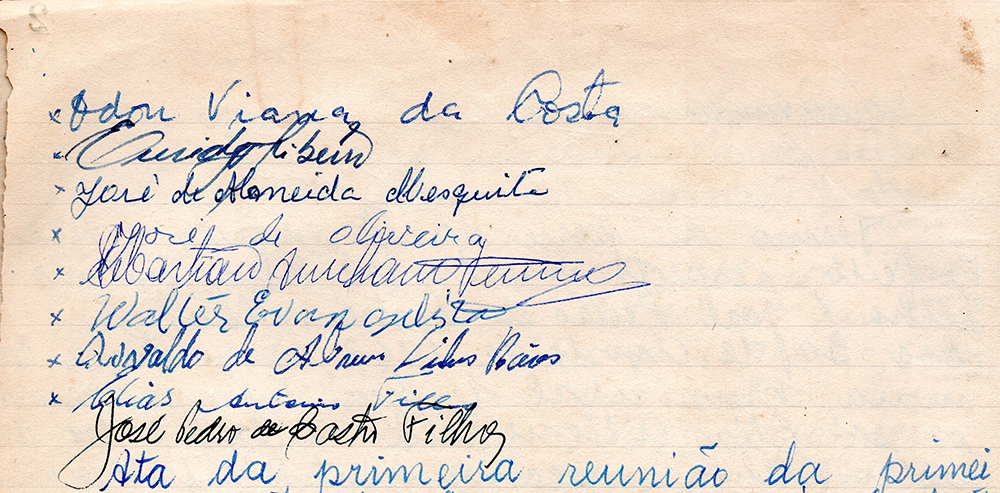 x Odon Viana da Costa
x Ribeiro
x José de Almeida Mesquita
x José de Oliveira
x Sebastião
x Walter Evangelista
x Osvaldo de Abreu
x Elias Antonio
José Pedro de Castro Filho
Ata da primeira reunião da primei